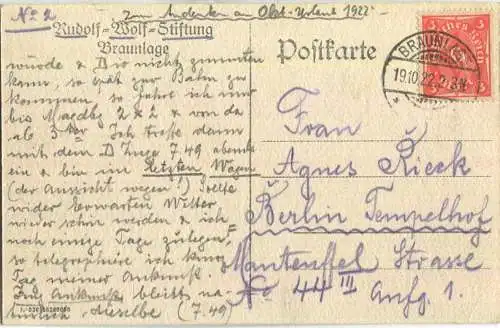 No 2
zum Andenken an Okt-Urlaub 1922
Rudolf-Wolf-Stiftung
Braunlage
Postkarte
BRAUNLAGE
19.10.22.2-3N
würde & D so nicht zumuten
kann, so spät zur Bahn zu
kommen, so fahre ich nur
bis Magdbg 2 & 2 & von da
ab 3 ter. Ich treffe dann
mit dem D Zuge 7.49 abends
ein & bin im letzten Wagen
(der Aussicht wegen!) Sollte
wider Erwarten Wetter
wieder schön werden & ich
noch einige Tage zulegen,
so telegraphiere ich kurz
Tag meiner Ankunft.
Zug Ankunft bleibt na-
türlich dieselbe (7.49)
Frau
Agnes Rieck
Berlin Tempelhof
Manteuffel Strasse
No 44 III Aufg 1.